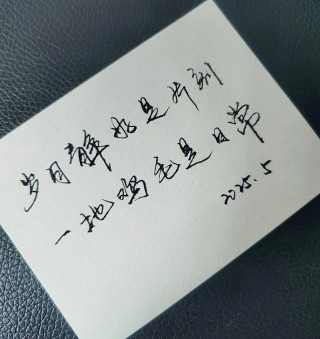 岁月静好是片刻
一地鸡毛是日常
2025.5